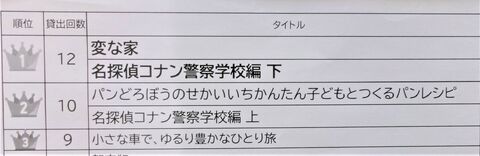 順位 貸出回数 タイトル
1 12 変な家
名探偵コナン警察学校編 下
2 10 パンどろぼうのせかいいちかんたん子どもとつくるパンレシピ
名探偵コナン警察学校編 上
3 9 小さな車で、ゆるり豊かなひとり旅